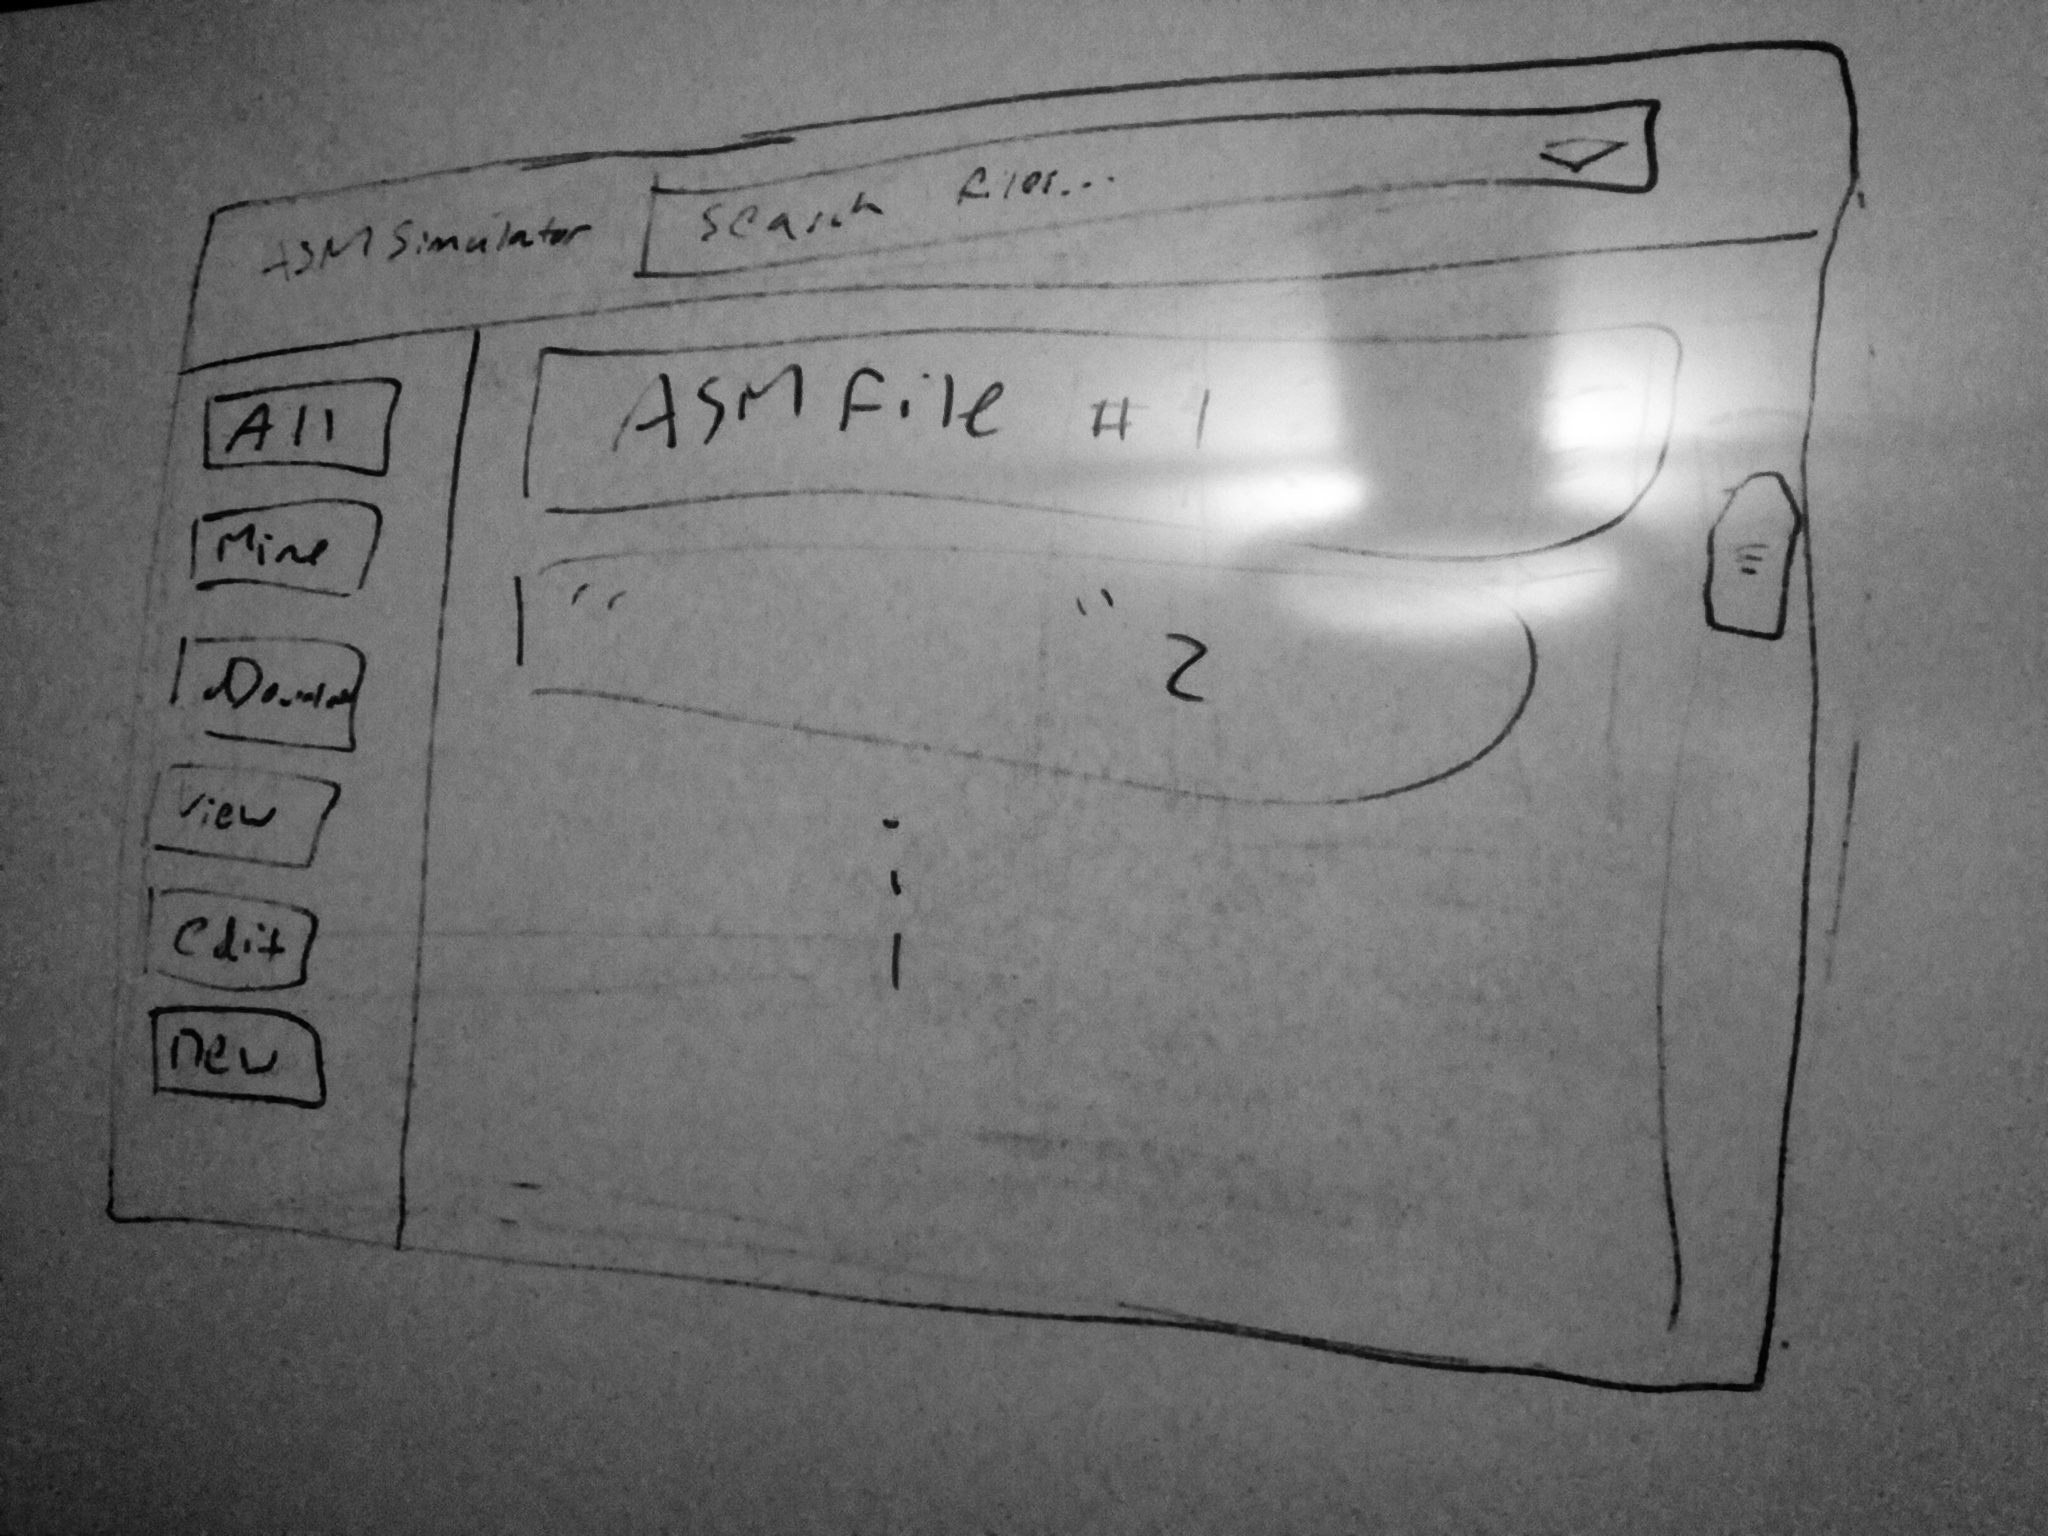 ASM Simulator
Search files...
All
Mine
View
Edit
new
ASM File #1
" " 2